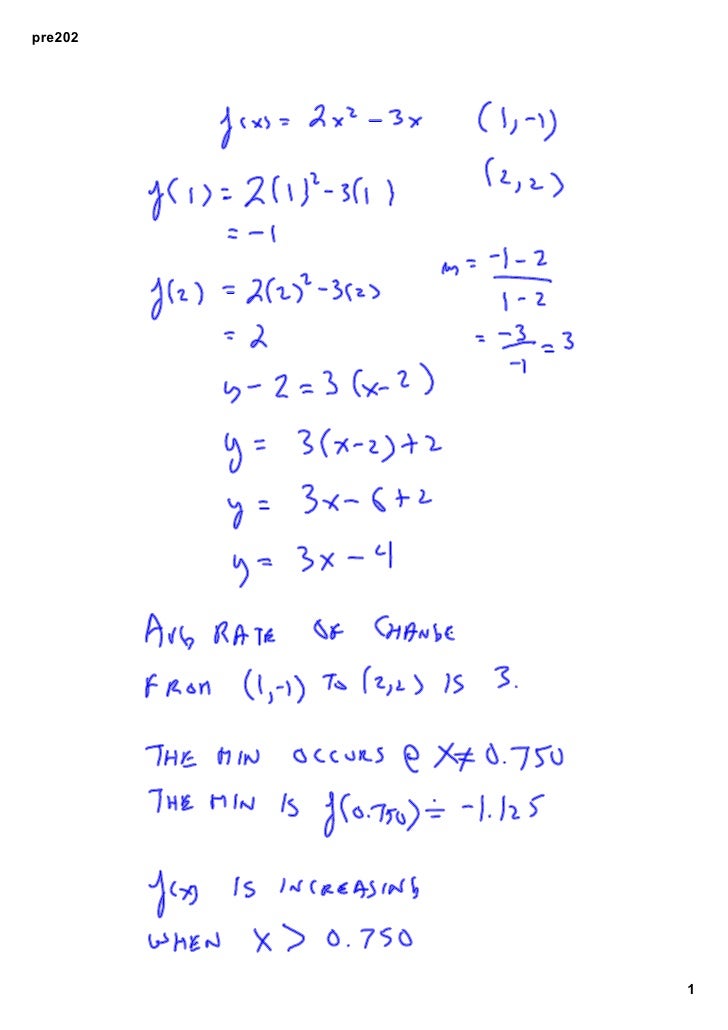 pre202
f(x) = 2x² - 3x (1,-1)
f(1) = 2(1)² - 3(1) (2,2)
= -1
f(2) = 2(2)² - 3(2) m = \frac{-1-2}{1-2}
= 2 = \frac{-3}{-1} = 3
y - 2 = 3(x-2)
y = 3(x-2)+2
y = 3x - 6 + 2
y = 3x - 4
AVG RATE OF CHANGE
FROM (1,-1) TO (2,2) IS 3.
THE MIN OCCURS @ X≠0.750
THE MIN IS f(0.750) ≐ -1.125
f(x) IS INCREASING
WHEN X > 0.750
1